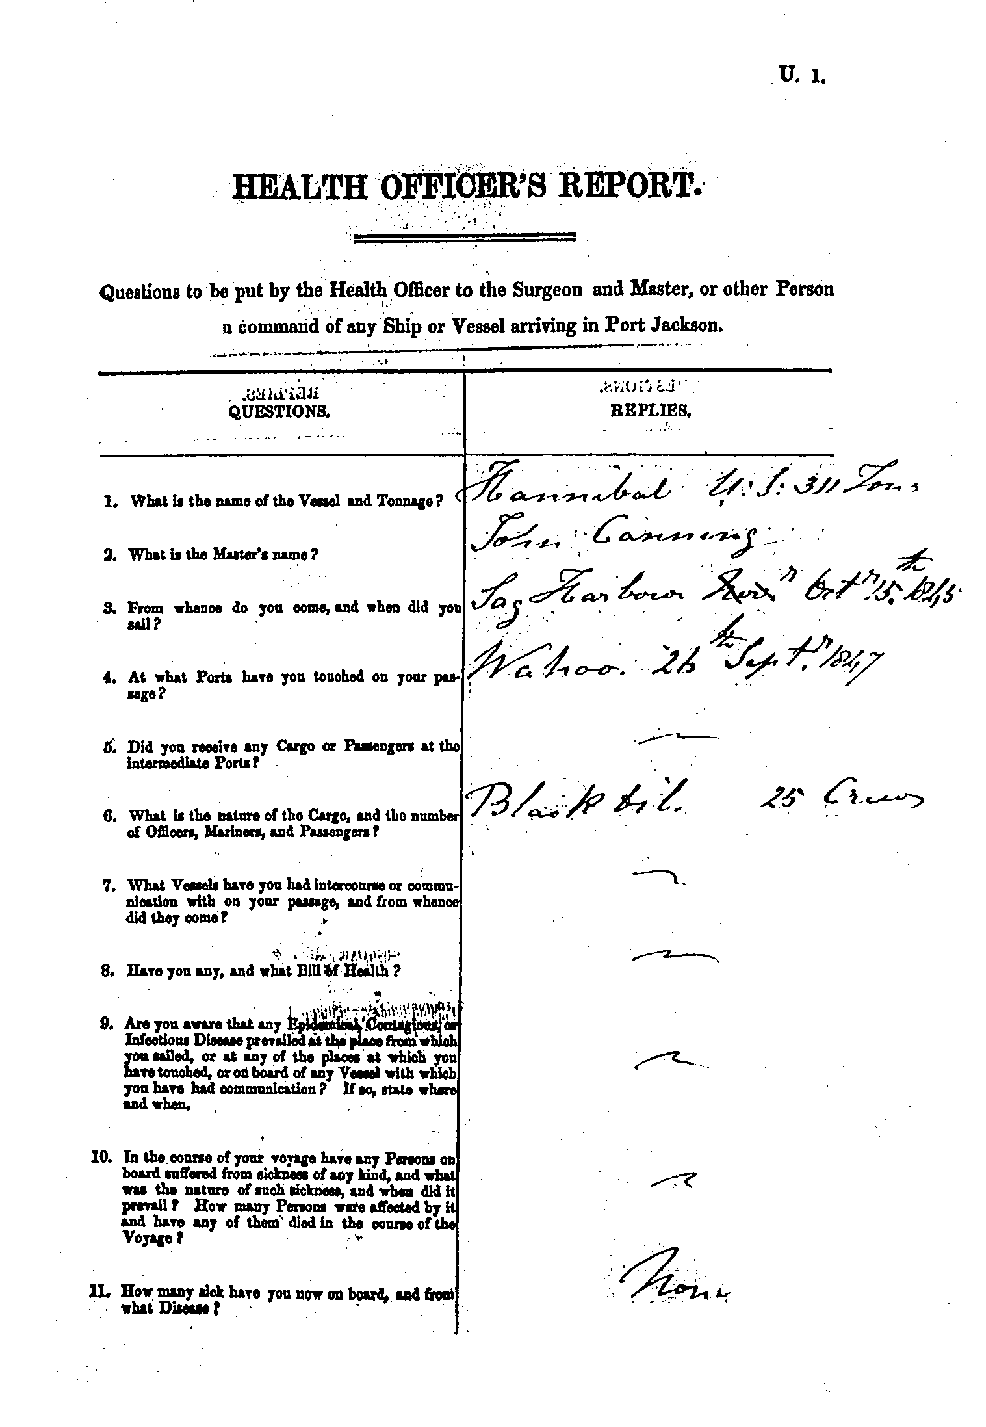 U. 1.
HEALTH OFFICER'S REPORT.
Questions to be put by the Health Officer to the Surgeon and Master, or other Person
n command of any Ship or Vessel arriving in Port Jackson.
QUESTIONS.
REPLIES.
1. What is the name of the Vessel and Tonnage?
Hannibal U.S: 311 Tons
2. What is the Master's name?
John Canning
3. From whence do you come, and when did you
sail?
Sag Harbour Octr 15th 1845
4. At what Ports have you touched on your pas-
sage?
Wahoo. 26th Septr. 1847
5. Did you receive any Cargo or Passengers at the
Intermediate Ports?
—
6. What is the nature of the Cargo, and the number
of Officers, Mariners, and Passengers?
Black Oil. 25 Crew
7. What Vessels have you had intercourse or commu-
nication with on your passage, and from whence
did they come?
8. Have you any, and what Bill of Health?
9. Are you aware that any Epidemical, Contagious, or
Infectious Disease prevailed at the place from which
you sailed, or at any of the places at which you
have touched, or on board of any Vessel with which
you have had communication? If so, state where
and when.
10. In the course of your voyage have any Persons on
board suffered from sickness of any kind, and what
was the nature of such sickness, and when did it
prevail? How many Persons were affected by it
and have any of them died in the course of the
Voyage?
11. How many sick have you now on board, and from
what Disease?
None